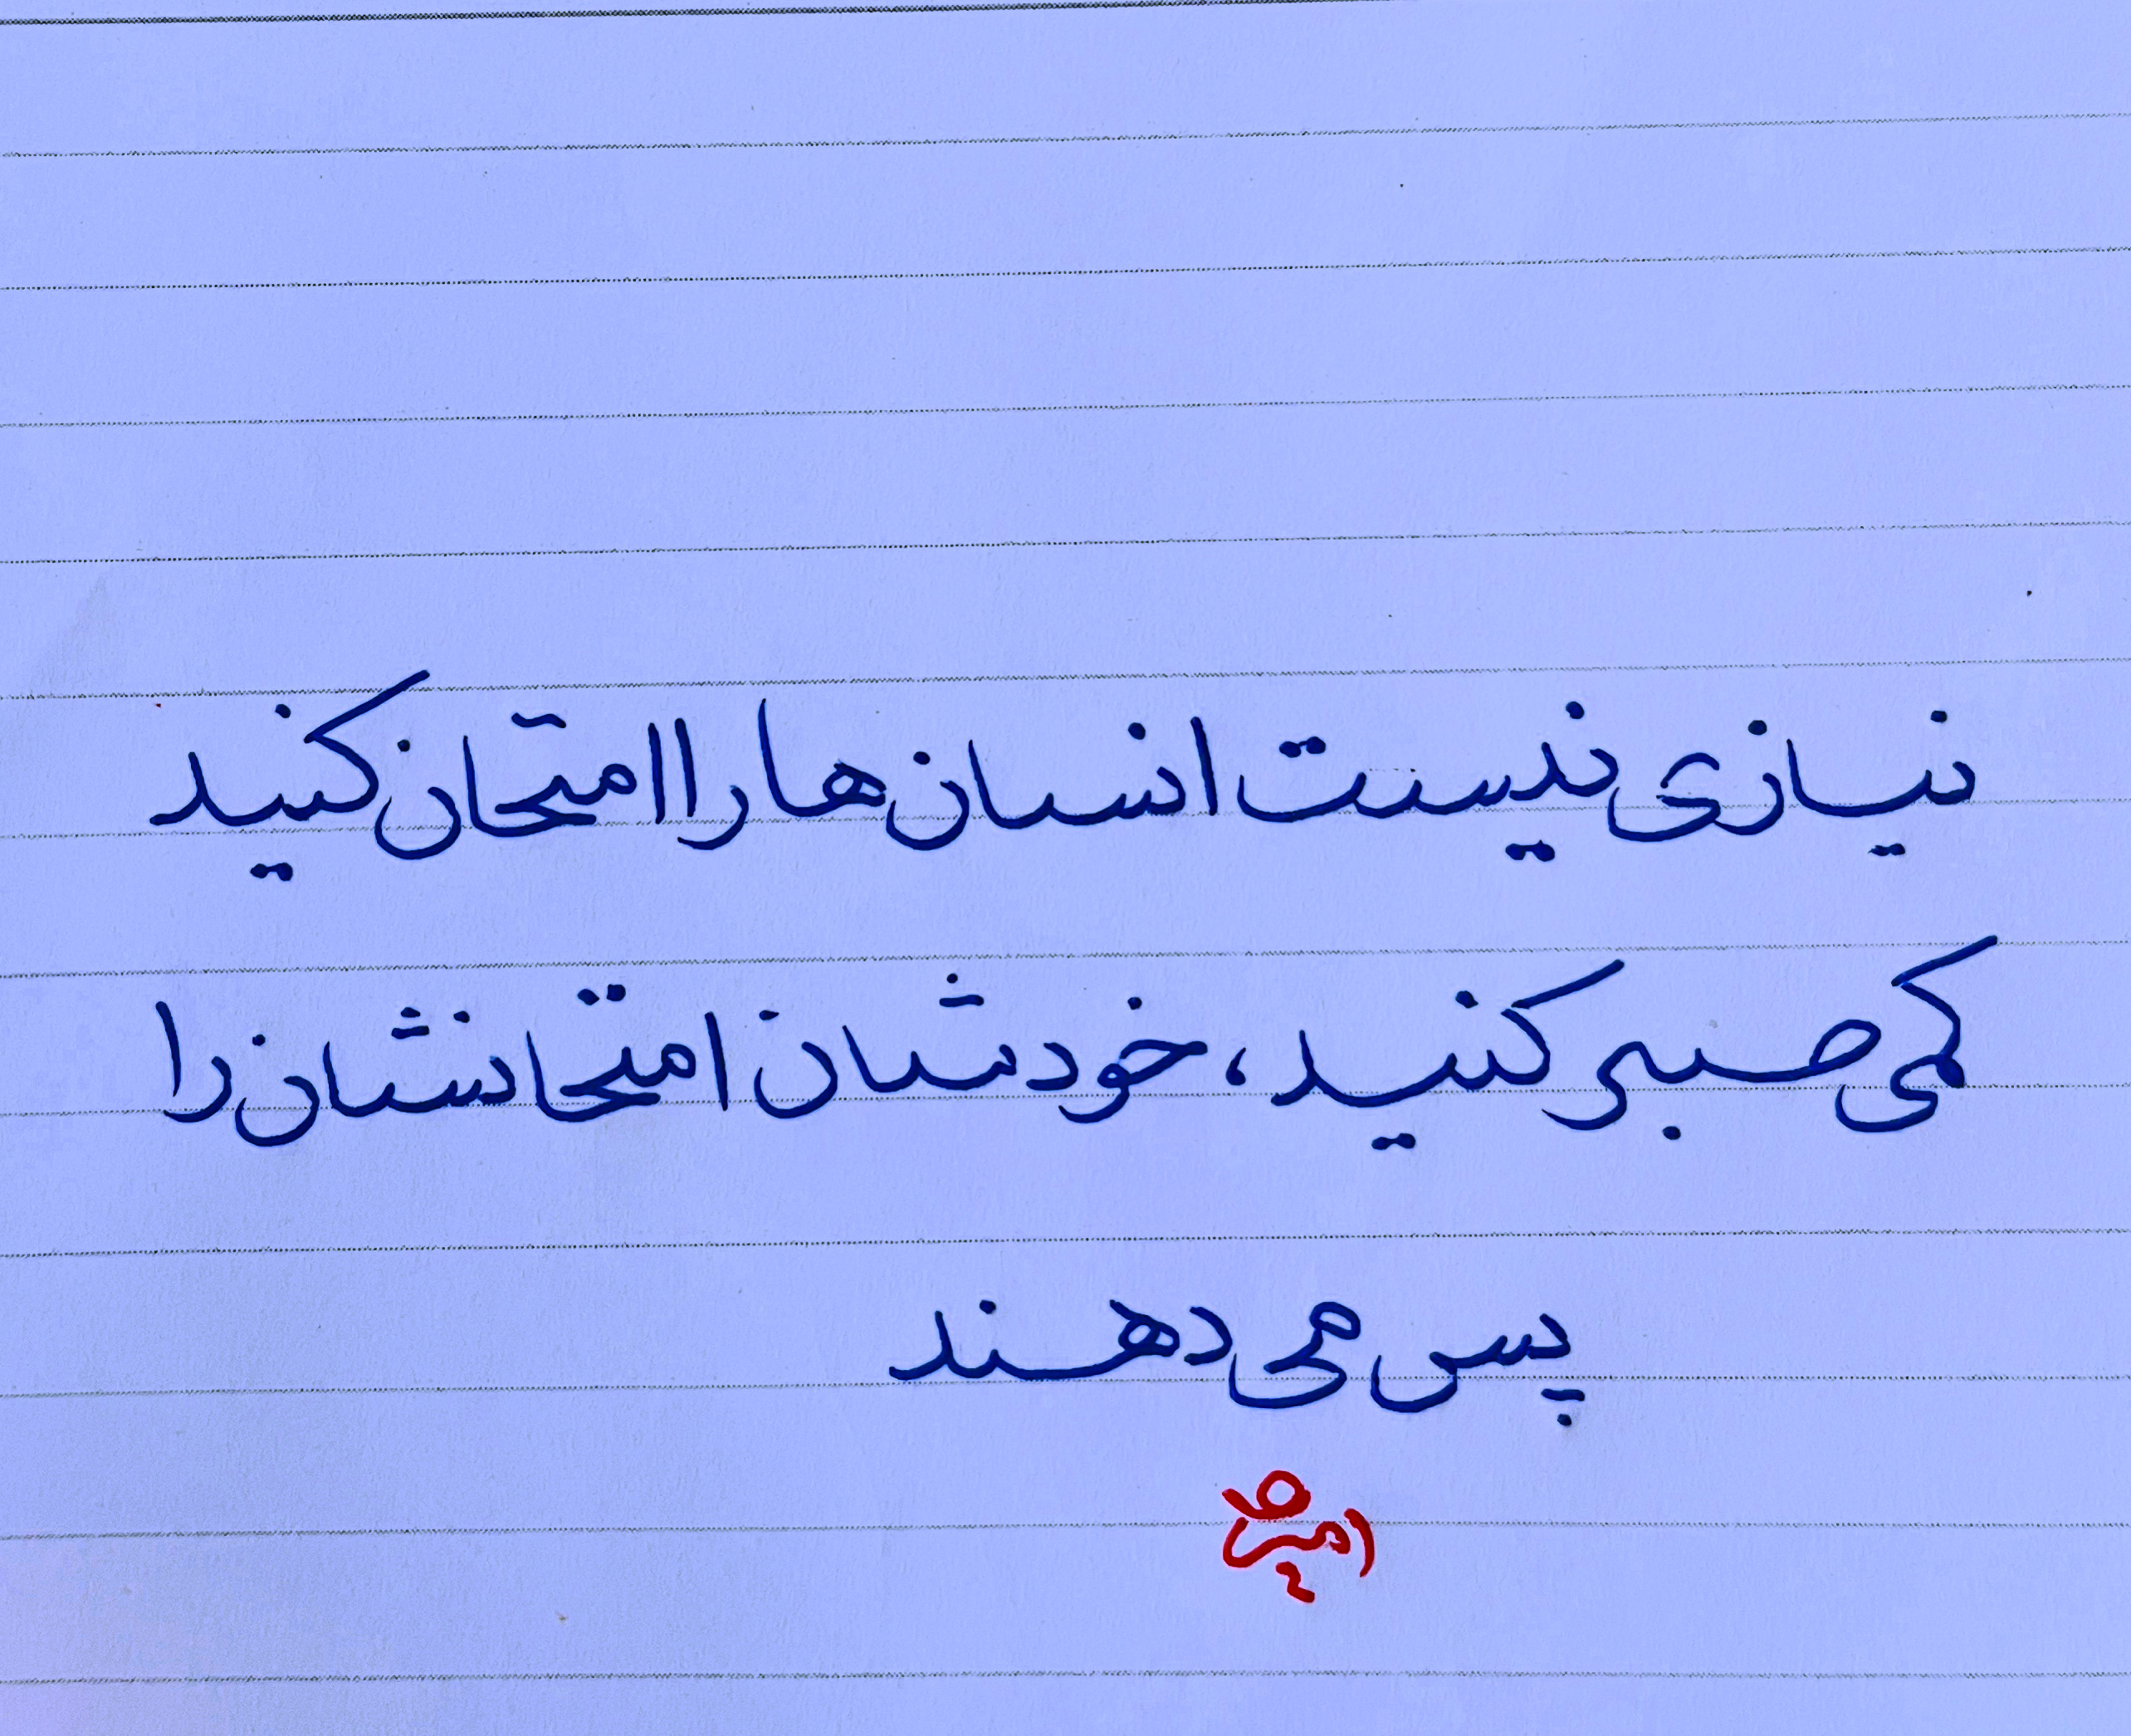 نیازی نیست انسان ها را امتحان کنید
کمی صبر کنید، خودشان امتحانشان را
پس می دهند